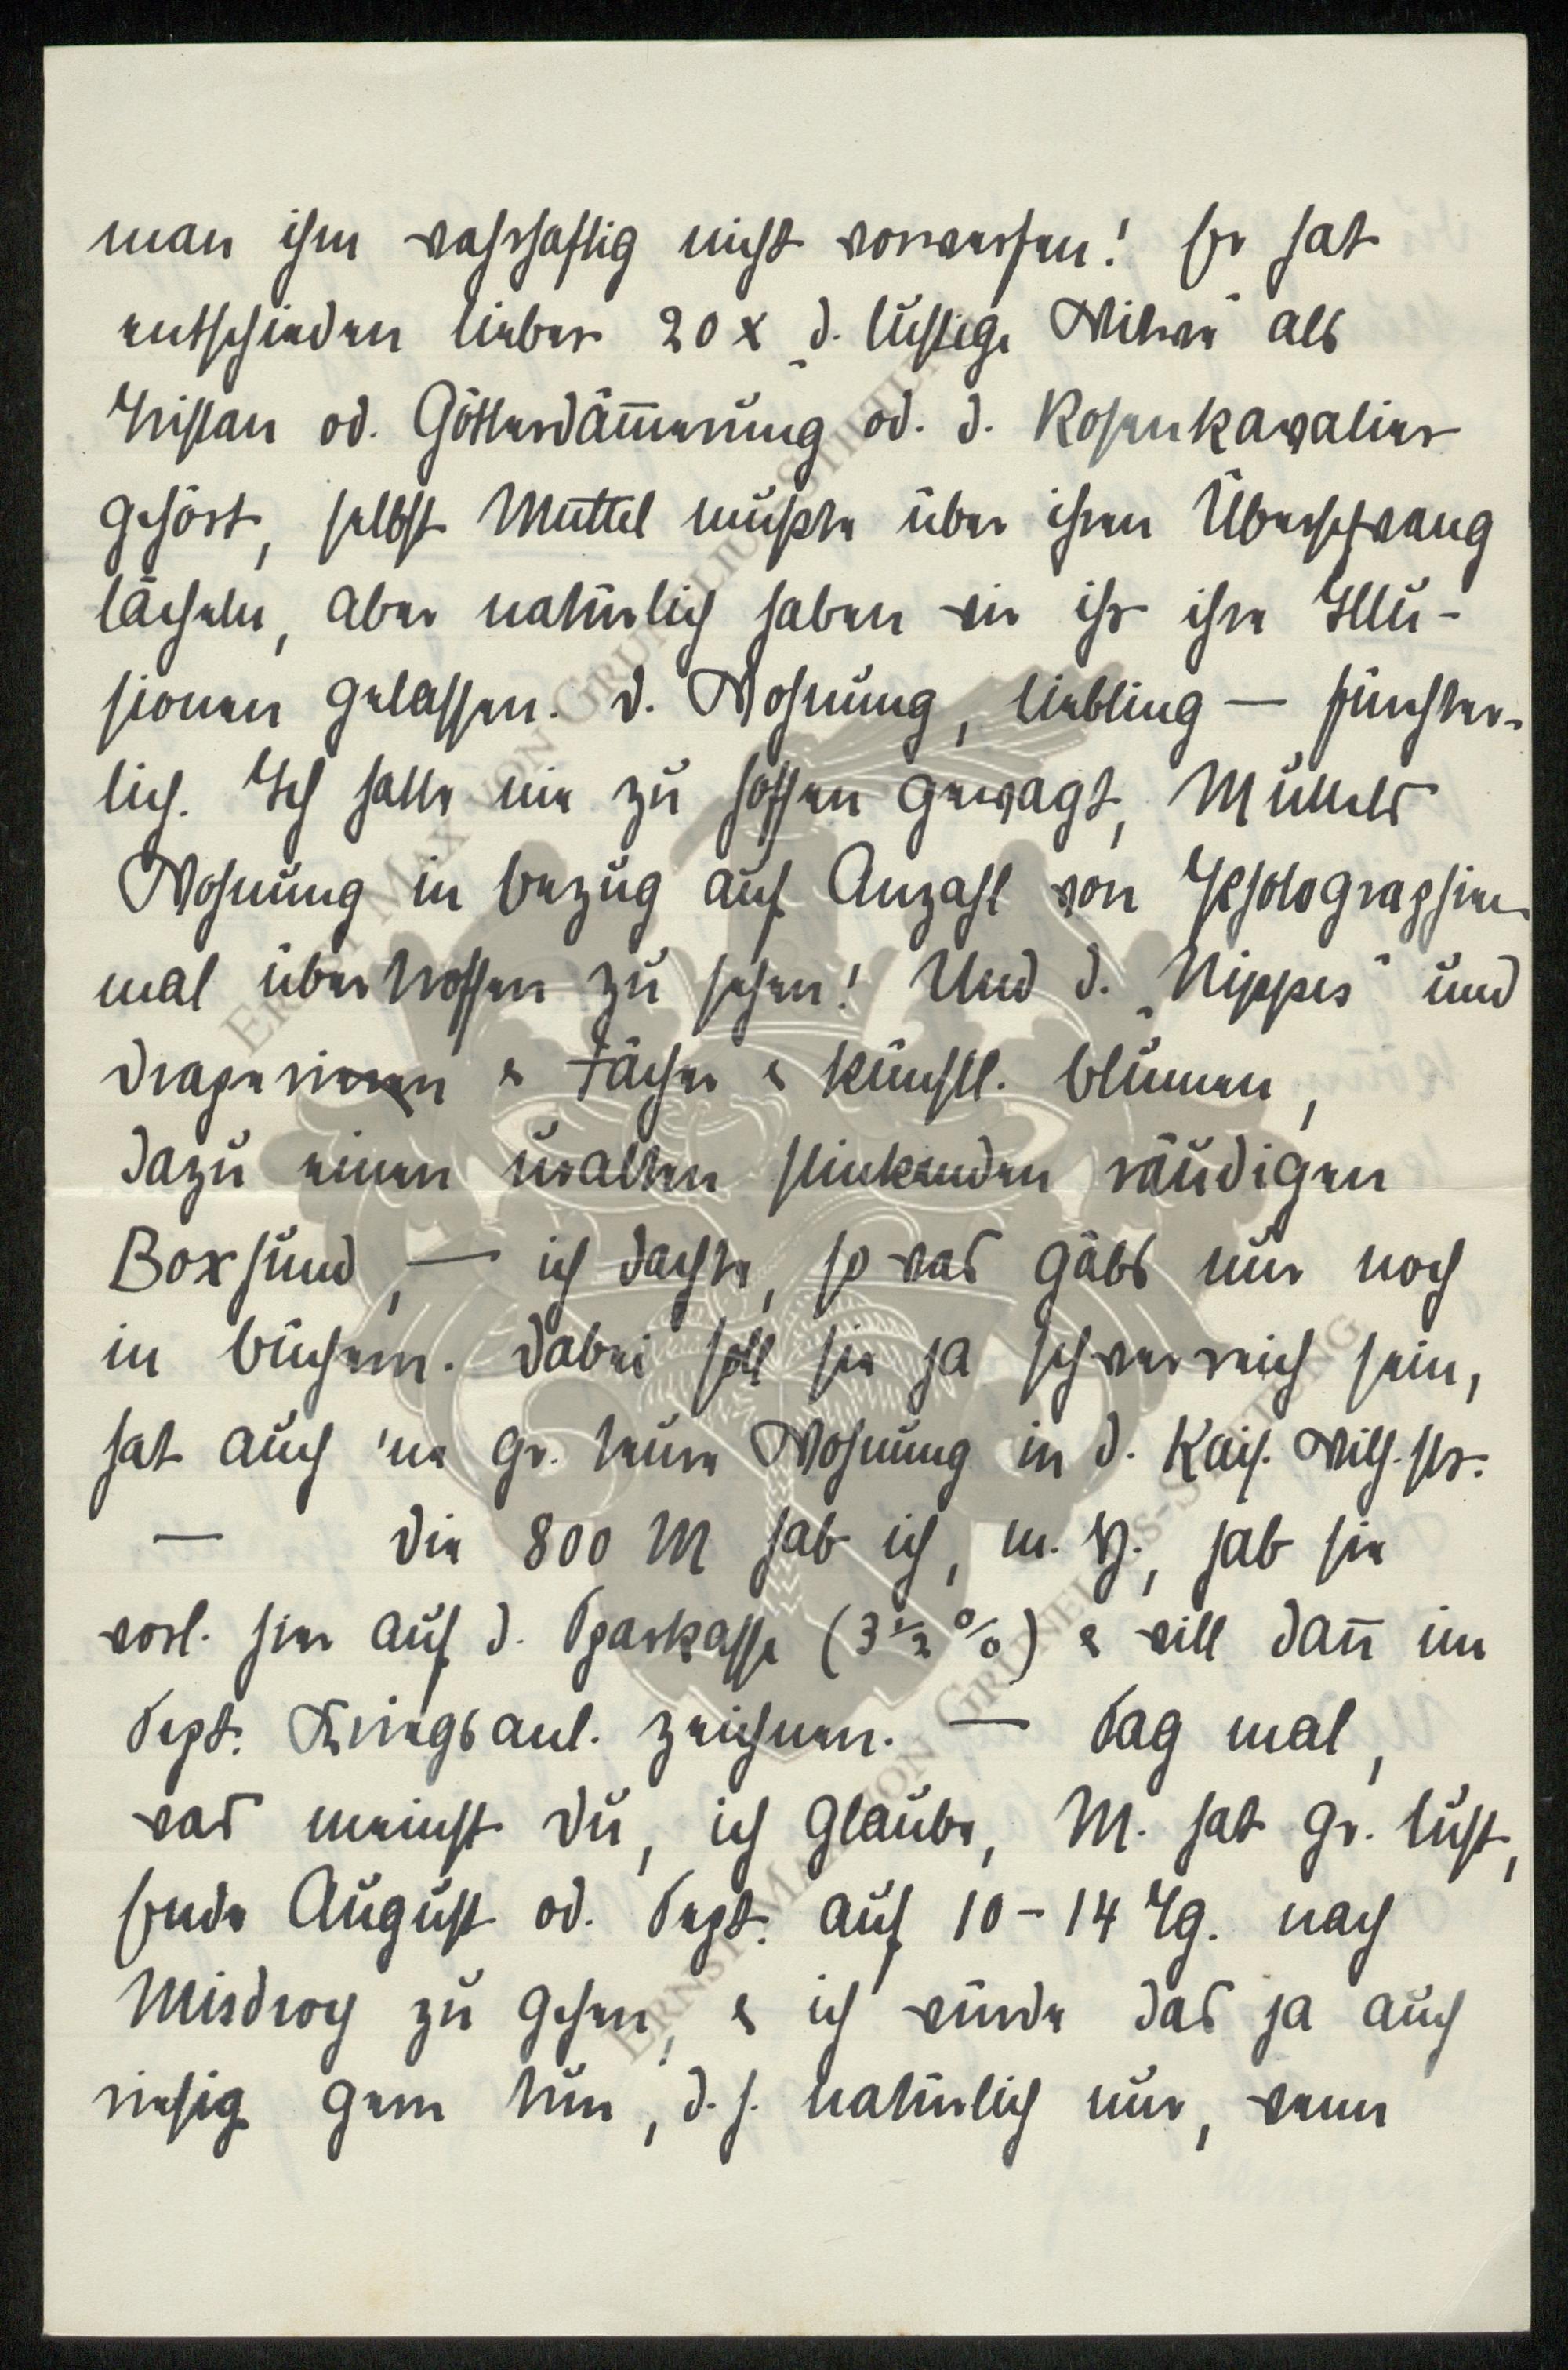 man ihm wahrhaftig nicht vorwerfen! Er hat
entschieden lieber 20 x „d. lustige Witwe" als
Tristan od. Götterdäm̅erung od. d. Rosenkavalier
gehört, selbst Muttel mußte über ihren Überschwang
lächeln, aber natürlich haben wir ihr ihre Illu-
sionen gelassen. D. Wohnung, Liebling — fürchter-
lich. Ich hatte nie zu hoffen gewagt, Muttels
Wohnung in bezug auf Anzahl von Photographien
mal übertroffen zu sehen! Und d. „Nippes" und
Draperieen & Fächer & künstl. Blumen,
dazu einen uralten stinkenden räudigen
Boxhund, — ich dachte, so was gäbs nur noch
in Büchern. Dabei soll sie ja schwerreich sein,
hat auch 'ne gr. teure Wohnung in d. Kais. Wilh. str.
— Die 800 M hab ich, m. H., hab sie
vorl. hier auf d. Sparkasse (3 ½ %) & will dan̅ im
Sept. Kriegsanl. zeichnen. — Sag mal,
was meinst Du, ich glaube, M. hat gr. Lust,
Ende August od. Sept. auf 10 - 14 Tg. nach
Misdroy zu gehen, & ich würde das ja auch
riesig gern tun, d. h. natürlich nur, wenn
ERNST MAX VON GRUNELIUS-STIFTUNG
ERNST MAX VON GRUNELIUS-STIFTUNG